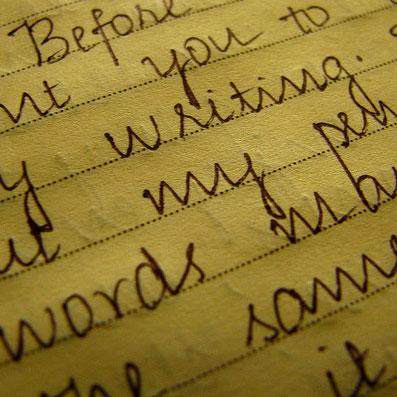 Before
nt you to
y writing.
ut my
words in
same
it